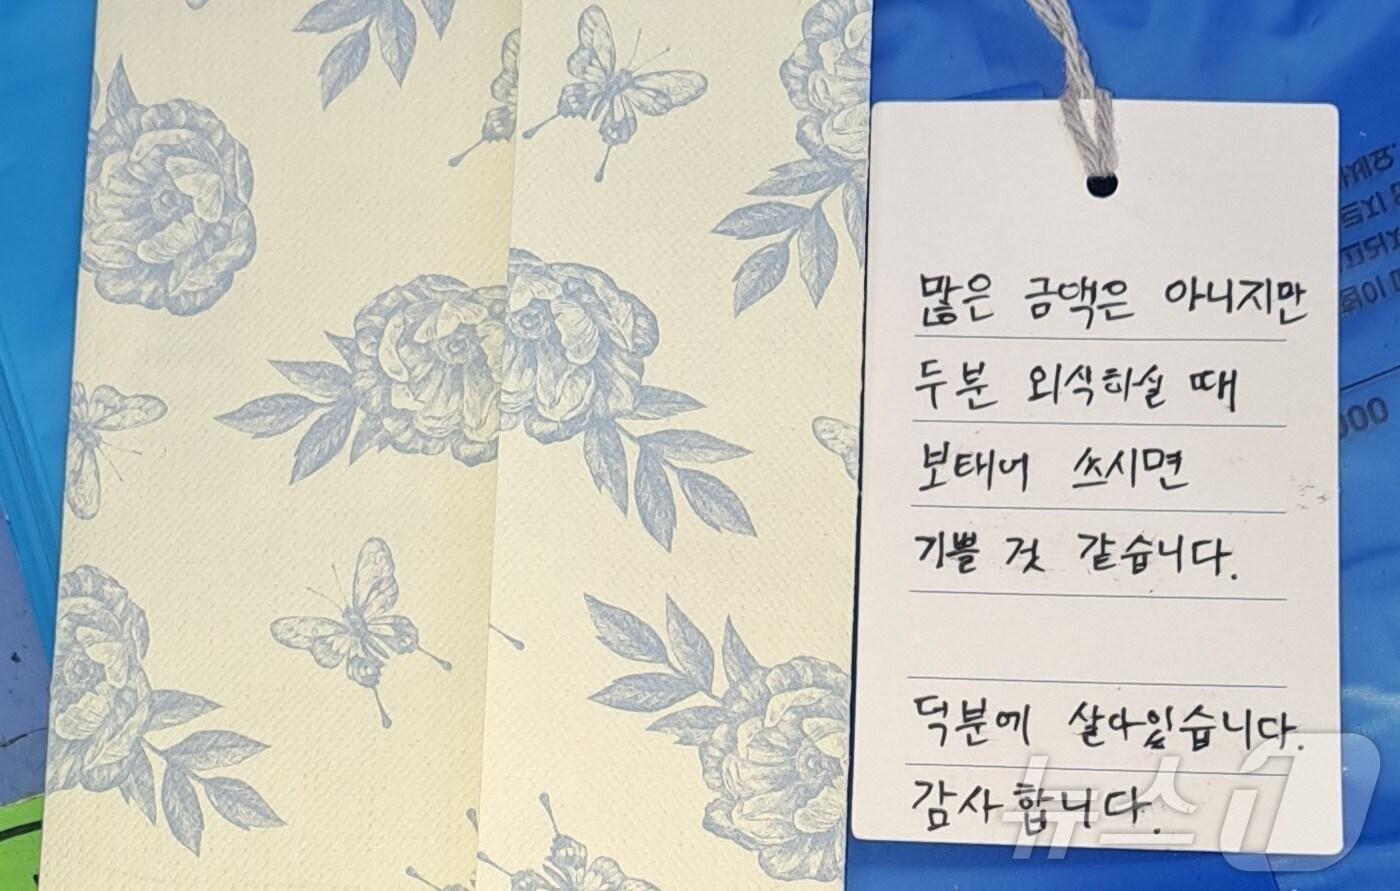 많은 금액은 아니지만
두분 외식하실 때
보태어 쓰시면
기쁠 것 같습니다.
덕분에 살아있습니다.
감사합니다.
뉴스1
000